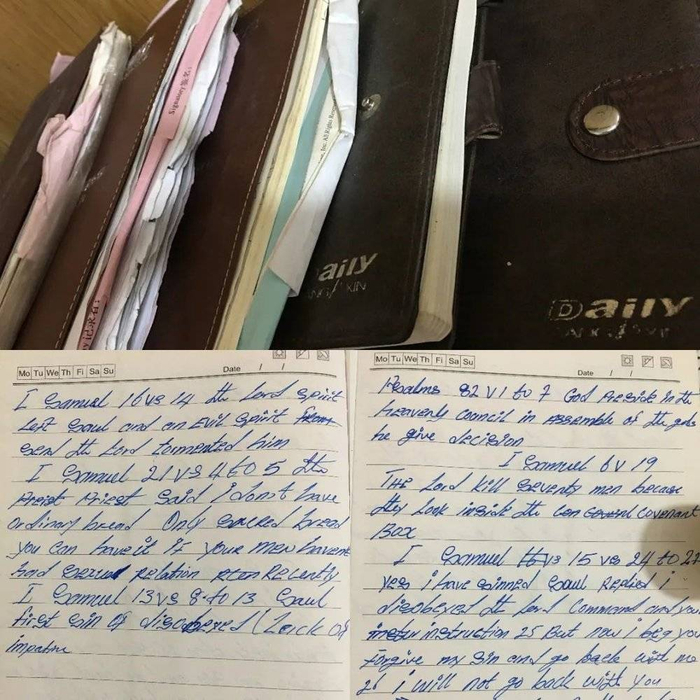 Signatory
Inc. All Rights
aily
Daily
Mo Tu We Th Fri Sa Su
Date / /
I Samuel 16 vs 14 the Lord Spirit
Left Saul and an Evil Spirit from
Send the Lord tormented him
I Samuel 21 vs 4 to 5 the
Priest Priest Said I don't have
ordinary bread Only Sacred bread
you can have it if your men havent
had sexual relation Recently
I Samuel 13 vs 8 to 13 Saul
first sin of (Lack of
Mo Tu We Th Fri Sa Su
Date / /
Psalms 82 V 1 to 7 God Preside in the
heavenly council in assemble of the gods
he give decision
I Samuel 6 v 19
The Lord kill seventy men because
they look inside the covenant
Box
I Samuel 15 vs 24 to
yes i have sinned Saul Replied i
disobeyed the Lord Command and you
instruction 25 But now i beg you
Forgive my Sin and go back with me
26 i will not go back with you